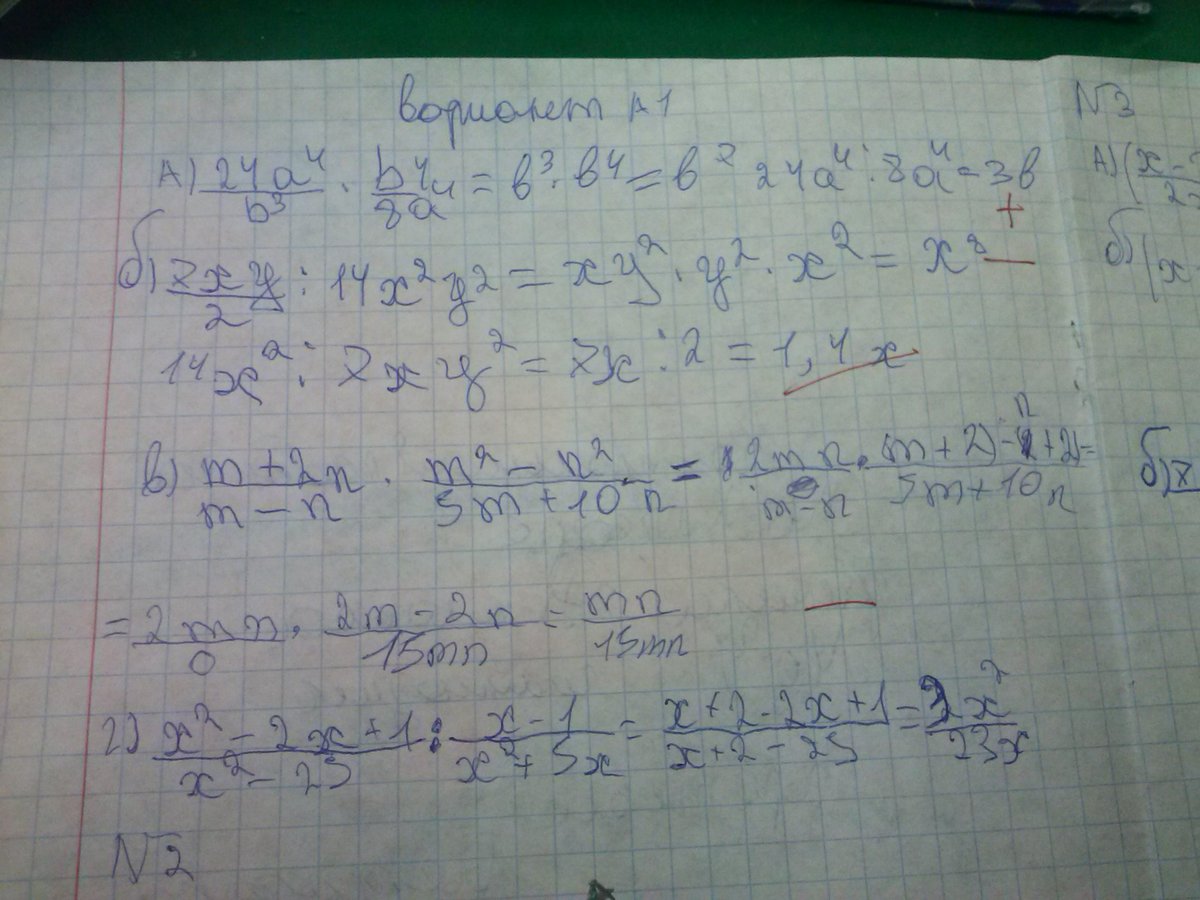 вариант А1
А) 24a⁴/b³ · b⁴/8a⁴ = b³·b⁴ = b⁷ 24a⁴:8a⁴ = 3b
+
б) 7xy/2 : 14x²y² = xy²·y²·x² = x⁸ —
14x² : 7xy² = 7x : 2 = 1,4x
в) m+2n/m−n · m²−n²/5m+10n = 2mn/m−n · (m+2)−(n+2)/5m+10n =
= 2mn/0 · 2m−2n/15mn = mn/15mn —
г) x²−2x+1/x²−25 : x−1/x²+5x = x+2−2x+1/x+2−25 = 2x²/23x
N2
N3
А) (x−
б) (x
б) 7